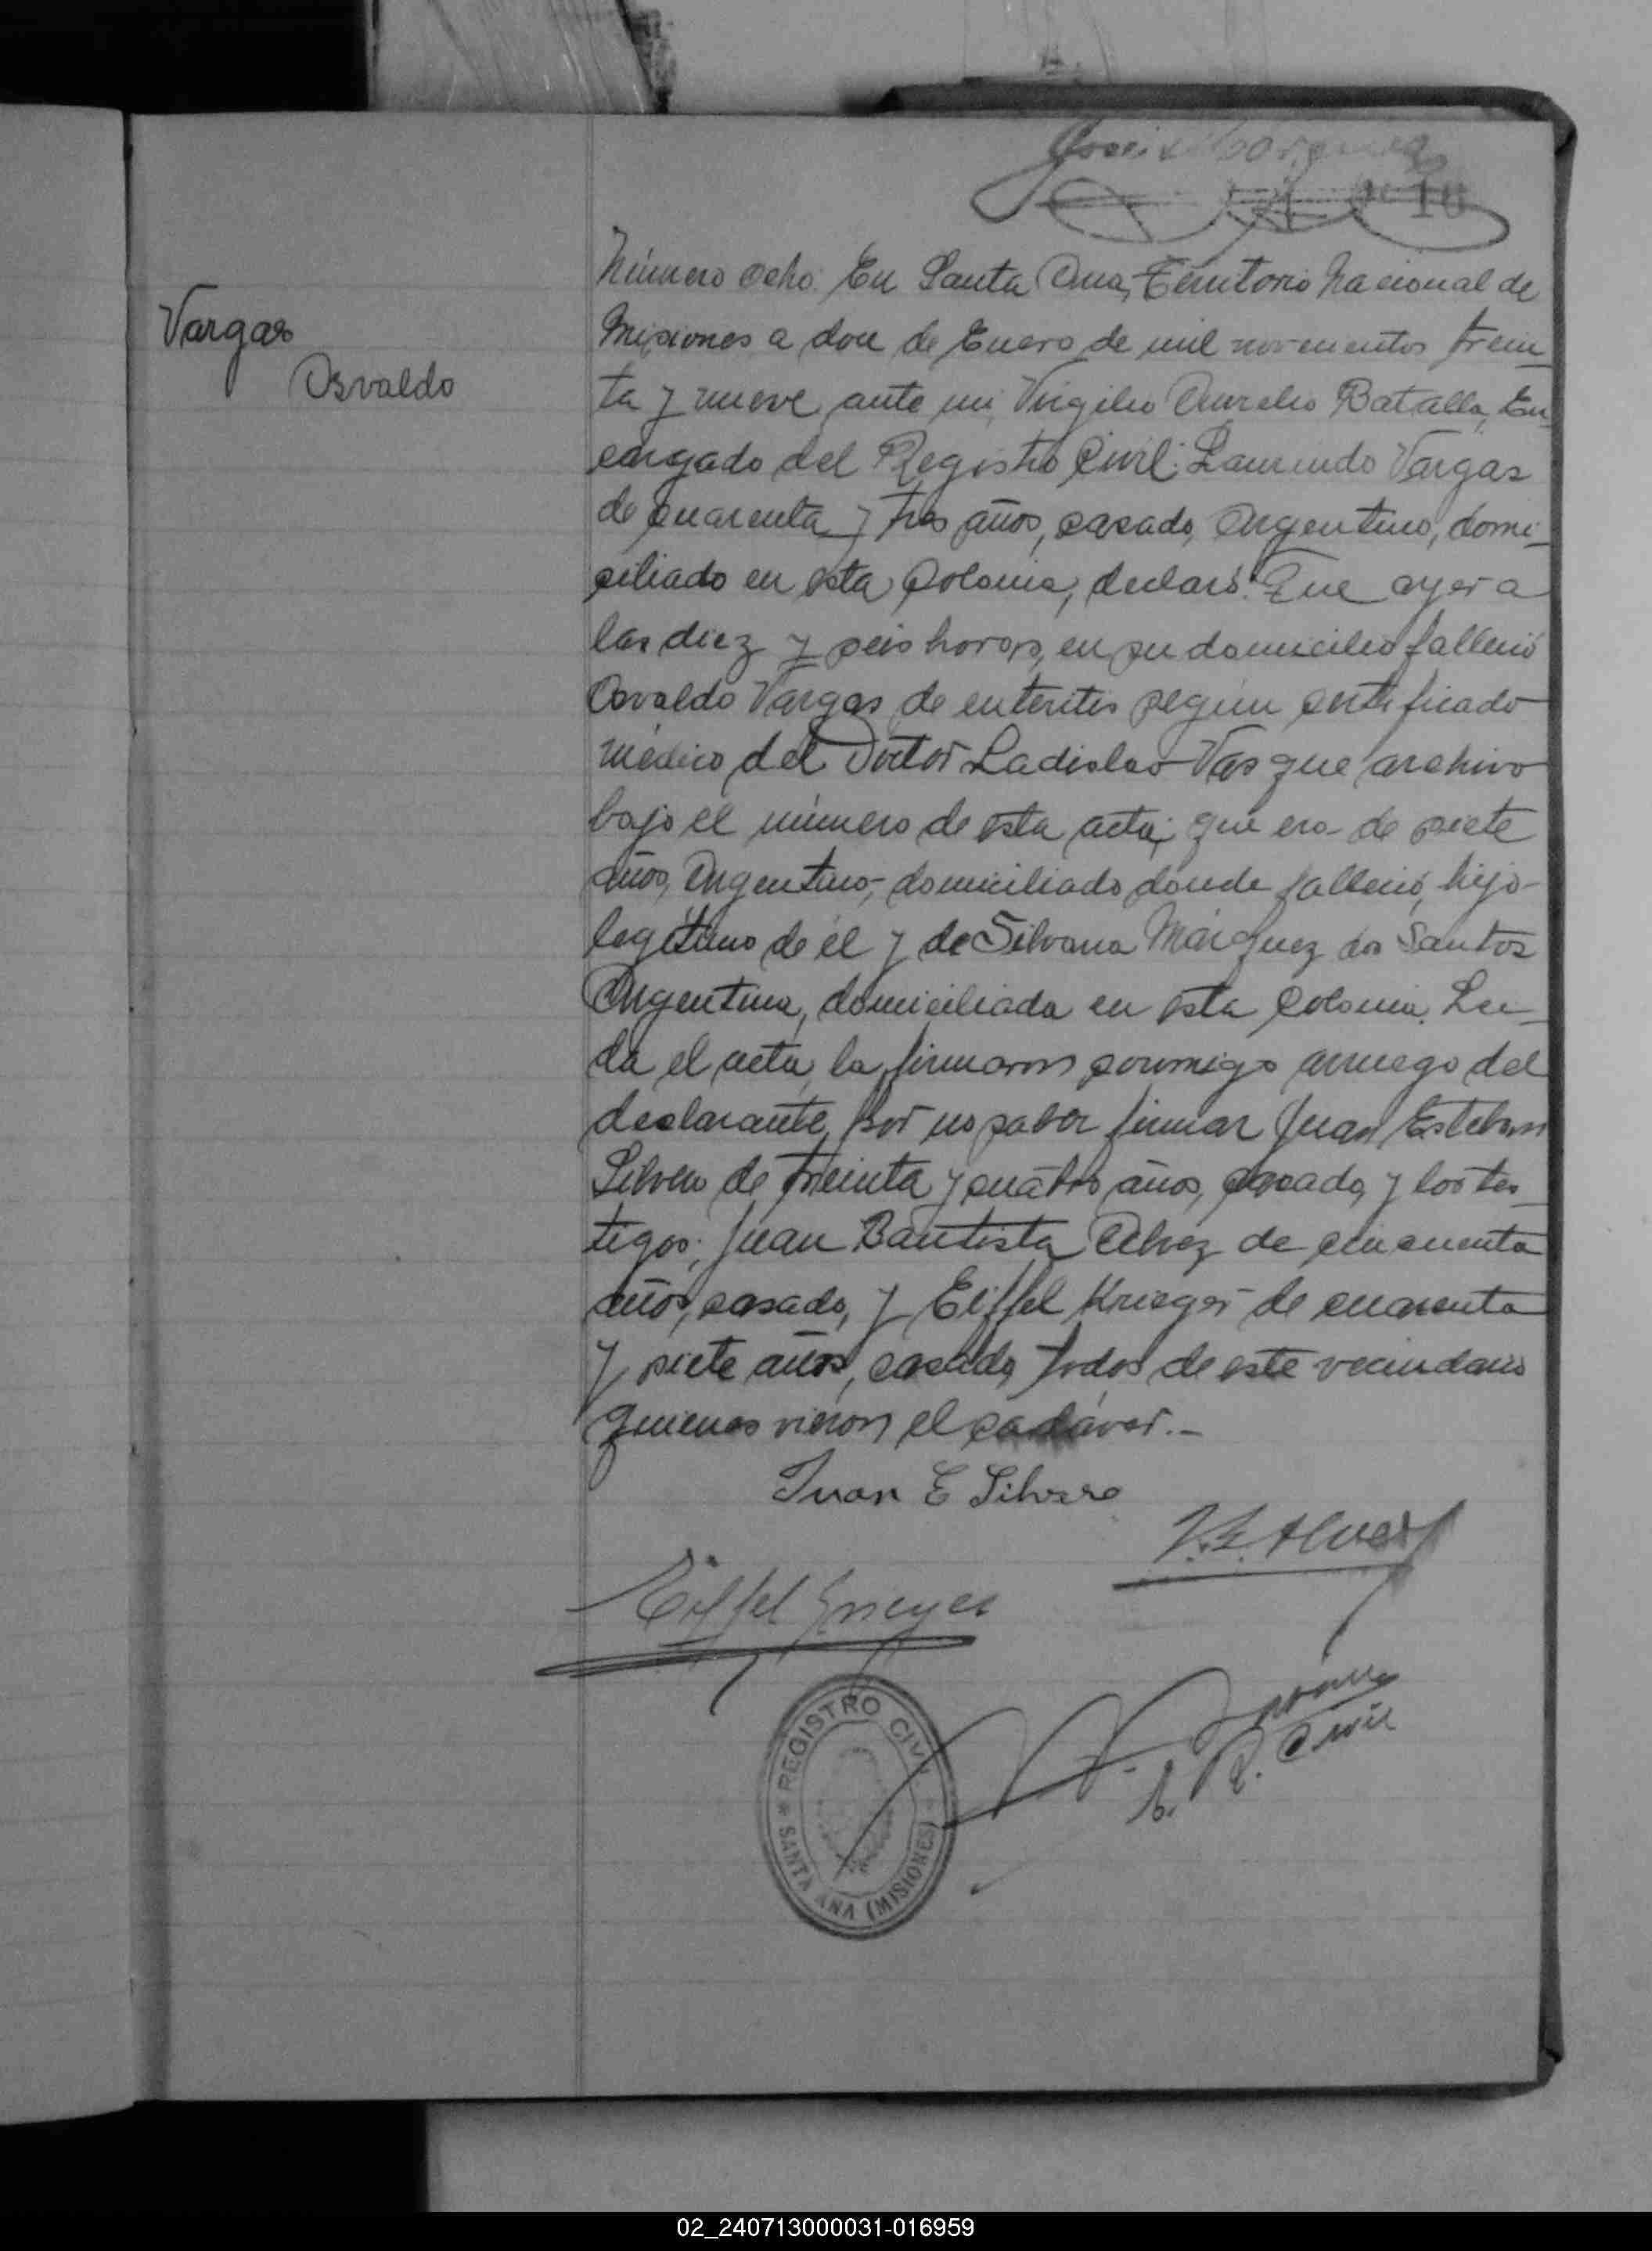 10
Vargas
Osvaldo
Número ocho. En Santa Ana, Territorio Nacional de
Misiones a doce de Enero de mil novecientos trein_
ta y nueve, ante mi, Virgilio Aurelio Batalla, En_
cargado del Registro Civil: Laurindo Vargas
de cuarenta y tres años, casado, Argentino, domi_
ciliado en esta Colonia, declaró: Que ayer a
las diez y seis horas, en su domicilio falleció
Osvaldo Vargas de enteritis según certificado
médico del Doctor Ladislao Vas que archivo
bajo el número de esta acta; que era de siete
años, Argentino, domiciliado donde falleció, hijo
legítimo de él y de Silvana Márquez dos Santos
Argentina, domiciliada en esta Colonia. Leí_
da el acta, la firmaron conmigo a ruego del
declarante, por no saber firmar Juan Esteban
Silvero de treinta y cuatro años, casado, y los tes_
tigos; Juan Bautista Alvez de cincuenta
años, casado, y Eiffel Krieger de cuarenta
y siete años, casado, todos de este vecindario
quienes vieron el cadáver.-
Juan E Silvero
Alvez
Eiffel Krieger
E. R. Civil
REGISTRO CIVIL
SANTA ANA (MISIONES)
02_240713000031-016959